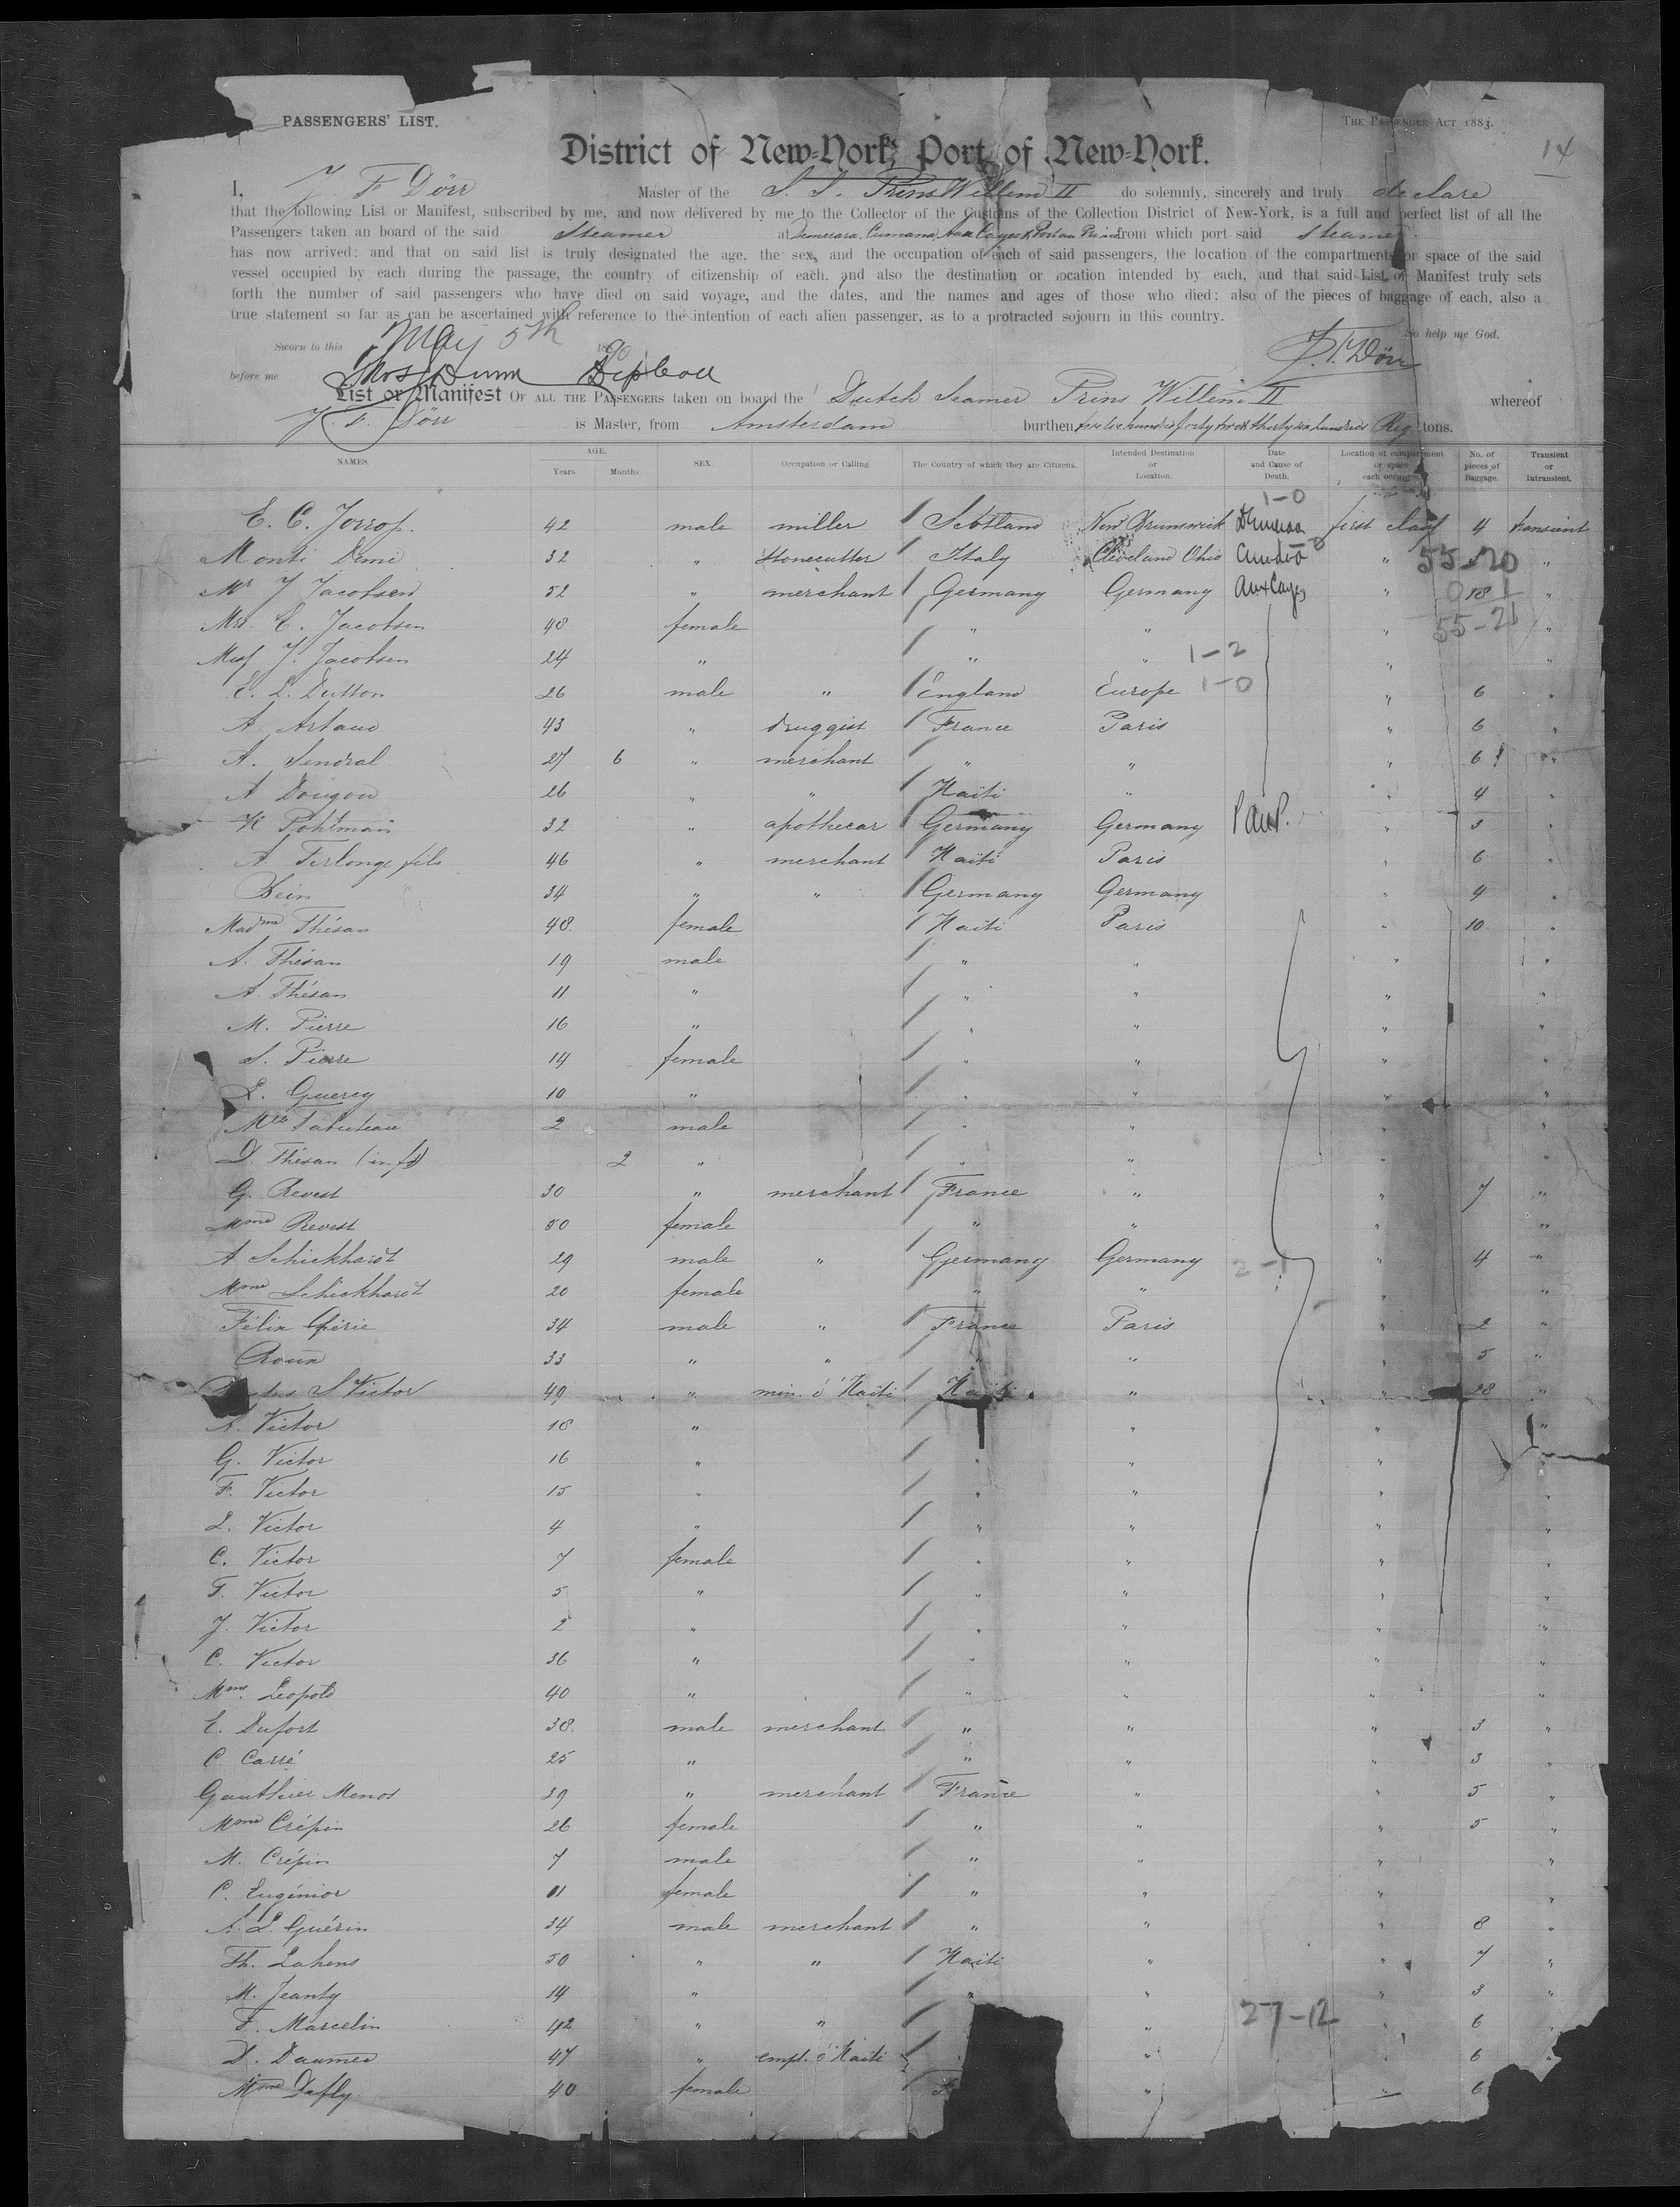 PASSENGERS' LIST.
THE PASSENGER ACT 1883.
14
District of New-York, Port of New-York.
I, J F Dörr Master of the S. S. Prins Willem II do solemnly, sincerely and truly declare
that the following List or Manifest, subscribed by me, and now delivered by me to the Collector of the Customs of the Collection District of New-York, is a full and perfect list of all the
Passengers taken an board of the said Steamer at Demerara, Cumana, Aux Cayes & Port au Prince from which port said Steamer
has now arrived; and that on said list is truly designated the age, the sex, and the occupation of each of said passengers, the location of the compartments or space of the said
vessel occupied by each during the passage, the country of citizenship of each, and also the destination or location intended by each, and that said List or Manifest truly sets
forth the number of said passengers who have died on said voyage, and the dates, and the names and ages of those who died; also of the pieces of baggage of each, also a
true statement so far as can be ascertained with reference to the intention of each alien passenger, as to a protracted sojourn in this country.
So help me God.
Sworn to this May 5th 1890
J. F. Dörr
before me Thos J Dunn Dep Coll
List or Manifest OF ALL THE PASSENGERS taken on board the Dutch Steamer Prins Willem II whereof
J. F. Dörr is Master, from Amsterdam burthen Reg tons.
NAMES. AGE. Years Months. SEX. Occupation or Calling. The Country of which they are Citizens. Intended Destination or Location. Date and Cause of Death. Location of compartment or space each occupied No. of pieces of Baggage. Transient or Intransient.
1-0
E. C. Jorrop. 42 male miller Scotland New Brunswick Demerara first class 4 transient
Monti Dime 32 " stonecutter Italy Cleveland Ohio " 55-20 "
Mr J Jacobsen 52 " merchant Germany Germany Aux Cayes " 18 "
Mrs. C. Jacobsen 48 female " " " 55-21 "
Miss J. Jacobsen 24 " " " 1-2 " "
E. L. Dutton 26 male " England Europe 1-0 " 6 "
A. Artaud 43 " druggist France Paris " 6 "
A. Sendral 27 6 " merchant " " " 6 "
A Dougou 26 " " Haïti " " 4 "
K Pohlman 32 " apothecar Germany Germany P au P. " 3 "
A. Ferlonge fils 46 " merchant Haïti Paris " 6 "
Bein 34 " " Germany Germany " 4 "
Madme Thésan 48 female Haïti Paris " 10 "
A. Thésan 19 male " " " "
A. Thésan 11 " " " " "
M. Pierre 16 " " " " "
S. Pierre 14 female " " " "
L. Quercy 10 " " " " "
Mlle Tabuteau 2 male " " " "
D. Thésan (inft) 2 " " " " "
G. Revest 30 " merchant France " " 7 "
Mme Revest 50 female " " " "
A Schickhardt 29 male " Germany Germany 2-1 " 4 "
Mme Schickhardt 20 female " " " "
Félix Chérie 34 male " France Paris " 2 "
Roux 33 " " " " " 5 "
S Victor 49 " min. d'Haïti Haïti " " 28 "
A. Victor 18 " " " " "
G. Victor 16 " " " " "
F. Victor 15 " " " " "
L. Victor 4 " " " " "
C. Victor 7 female " " " "
F. Victor 5 " " " " "
J. Victor 2 " " " " "
C. Victor 36 " " " " "
Mme. Leopold 40 " " " " "
E. Dufort 38 male merchant " " " 3 "
C. Carré 25 " " " " 3 "
Gauthier Menos 39 " merchant France " " 5 "
Mme Crépin 26 female " " " 5 "
M. Crépin 7 male " " " "
C. Eugénior 11 female " " " "
A. L. Guérin 34 male merchant " " " 8 "
Th. Lahens 50 " " Haïti " " 7 "
M. Jeanty 14 " " " " 3 "
F. Marcelin 42 " " " 27-12 " 6 "
D. Daumec 47 " empl. d'Haïti " " " 6 "
Mme Dafly. 40 female " " 6